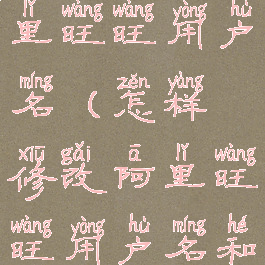 lǐ wàng wàng yòng hù
里旺旺用户
míng zěn yàng
名(怎样
xiū gǎi ā lǐ wàng
修改阿里旺
wàng yòng hù míng hé
旺用户名和